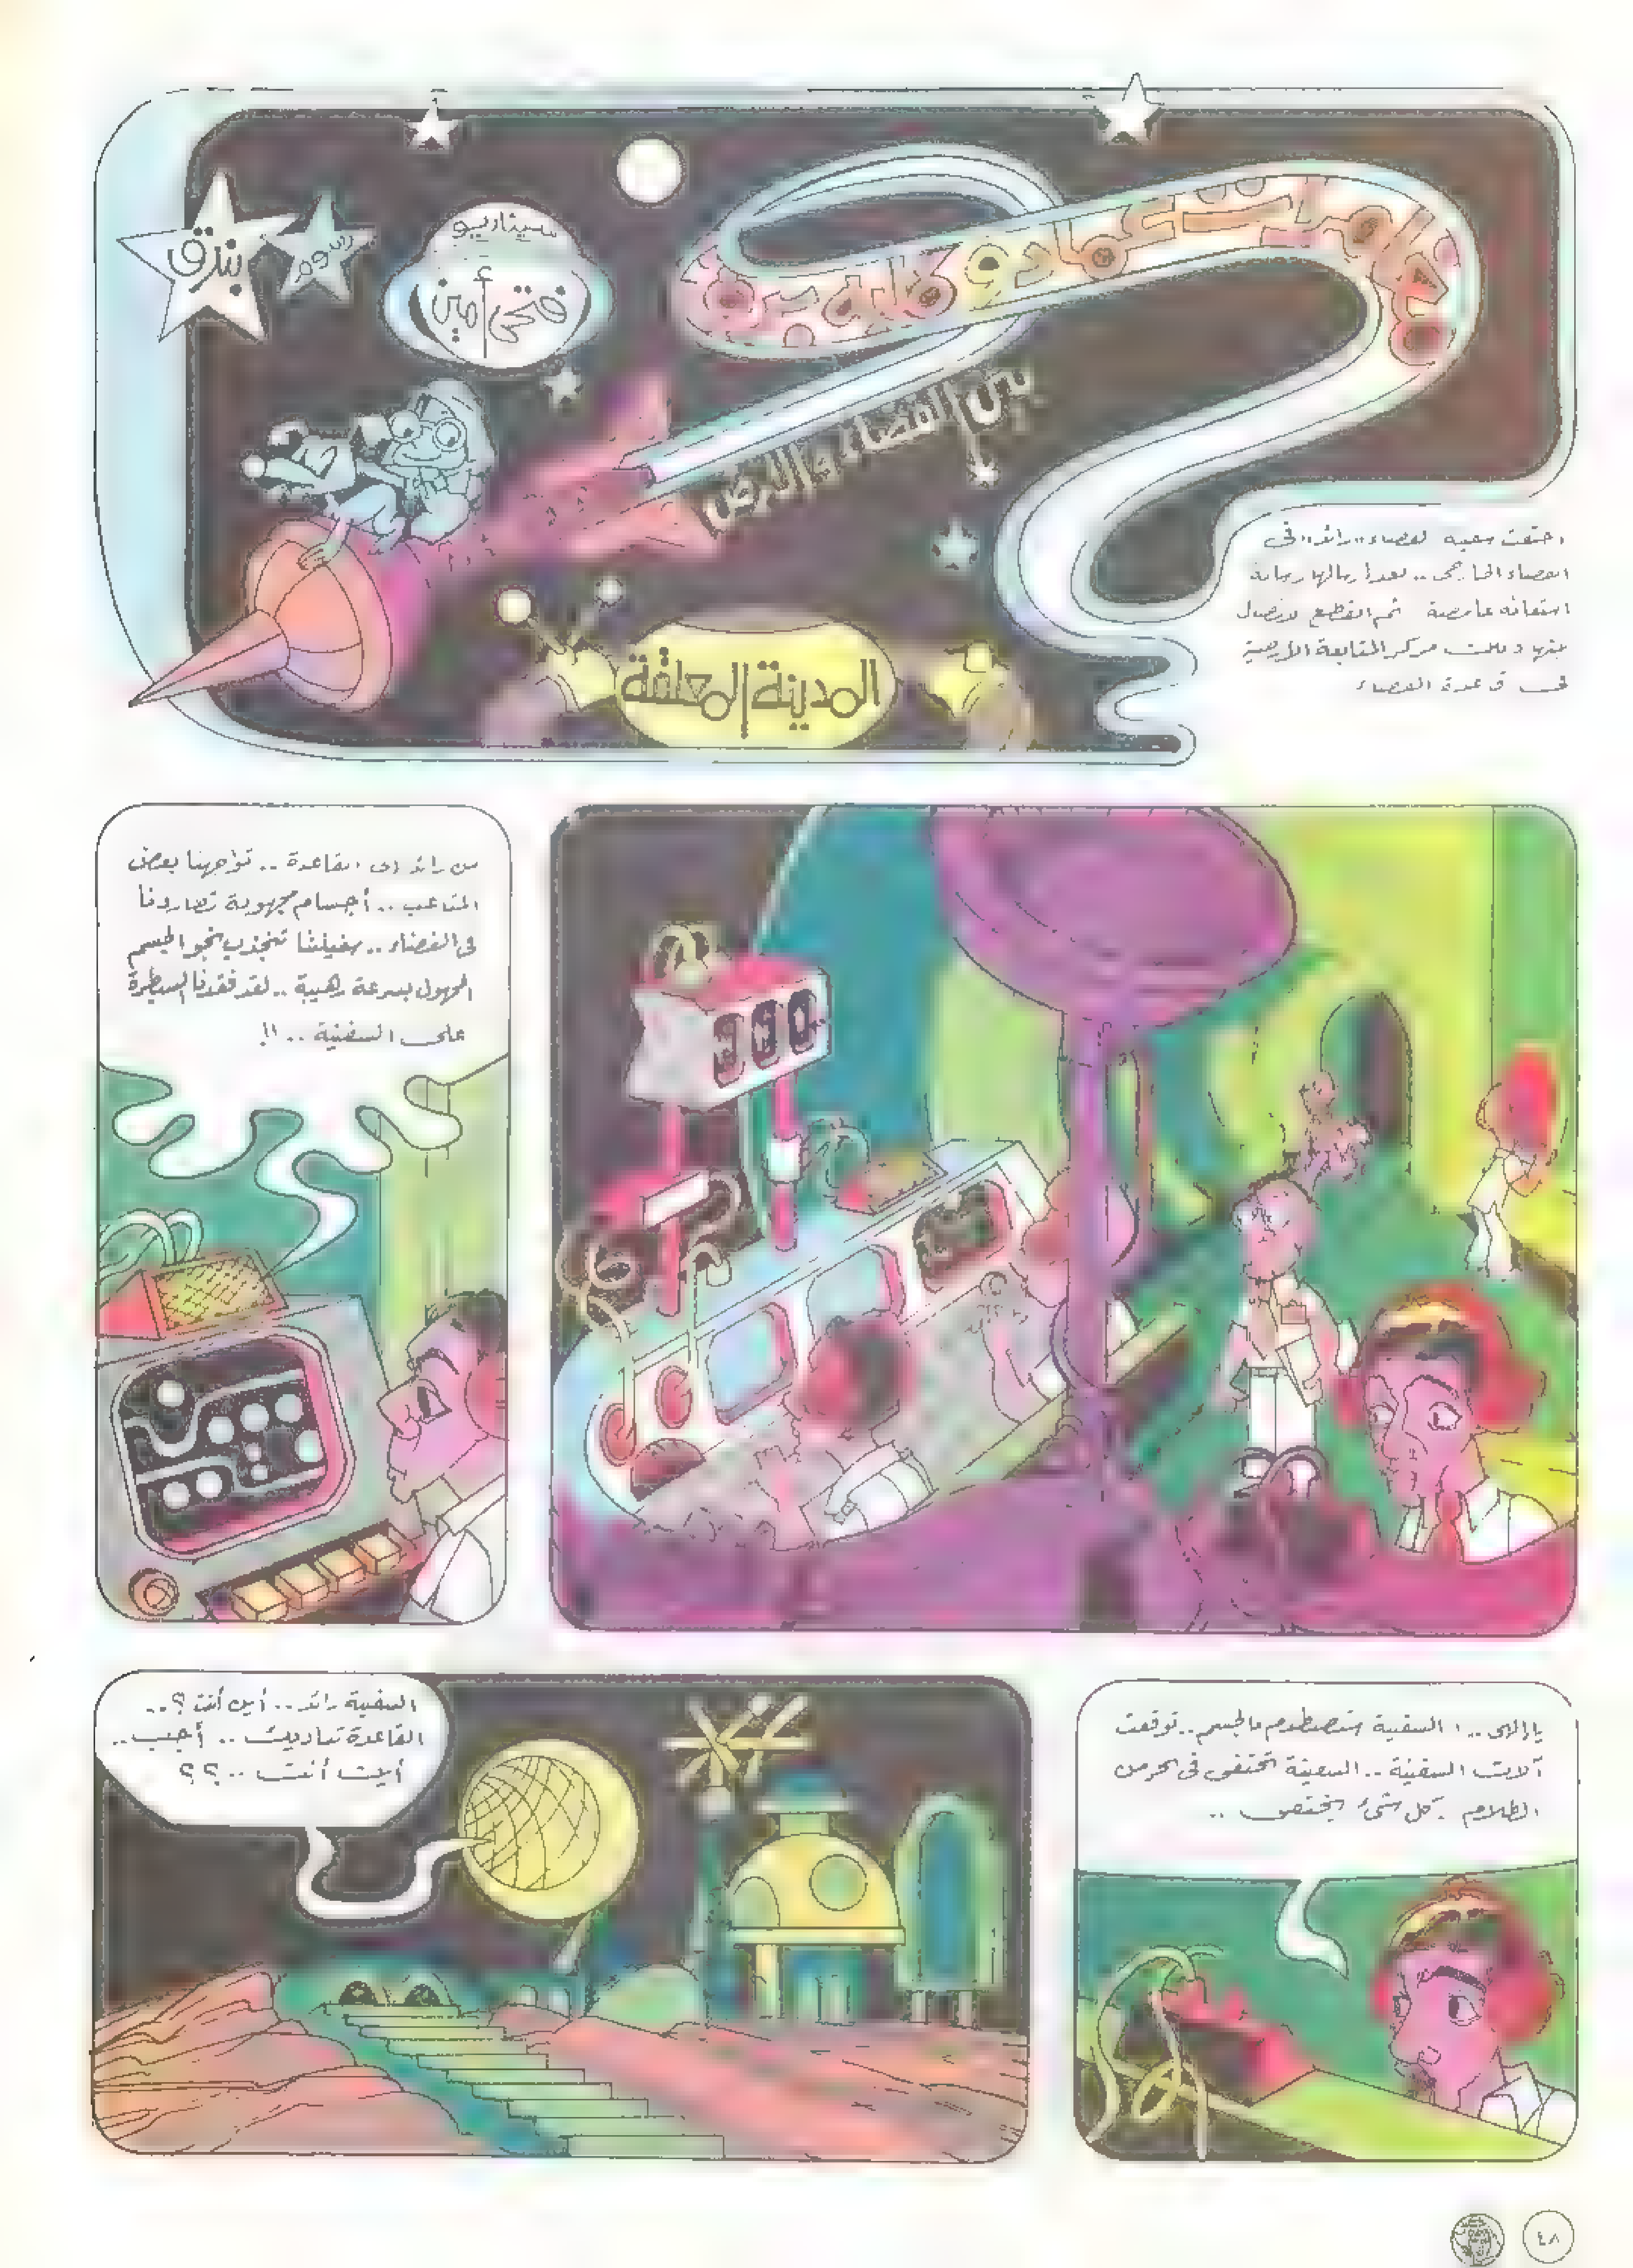 مغامرات عماد و
بين الفضاء والأرض
سيناريو
فتحى أمين
رسوم
بندق
المدينة المعلقة
اختفت سفينة الفضاء «رائد» فى
الفضاء الخارجى .. بعد إرسالها رسالة
استغاثة غامضة ثم انقطع الاتصال
بينها وبين مركز المتابعة الأرضية
فى قاعدة الفضاء
من رائد إلى القاعدة .. تواجهنا بعض
المتاعب .. أجسام مجهولة تطاردنا
فى الفضاء .. سفينتنا تنجذب نحو الجسم
المجهول بسرعة رهيبة .. لقد فقدنا السيطرة
على السفينة .. !!
يا إلهى .. ! السفينة ستصطدم بالجسم .. توقفت
آلات السفينة .. السفينة تختفى فى بحر من
الظلام . كل شئ يختفى ..
السفينة رائد .. أين أنت ؟ ..
القاعدة تناديك .. أجب ..
أين أنت .. ؟ ؟
٤٨